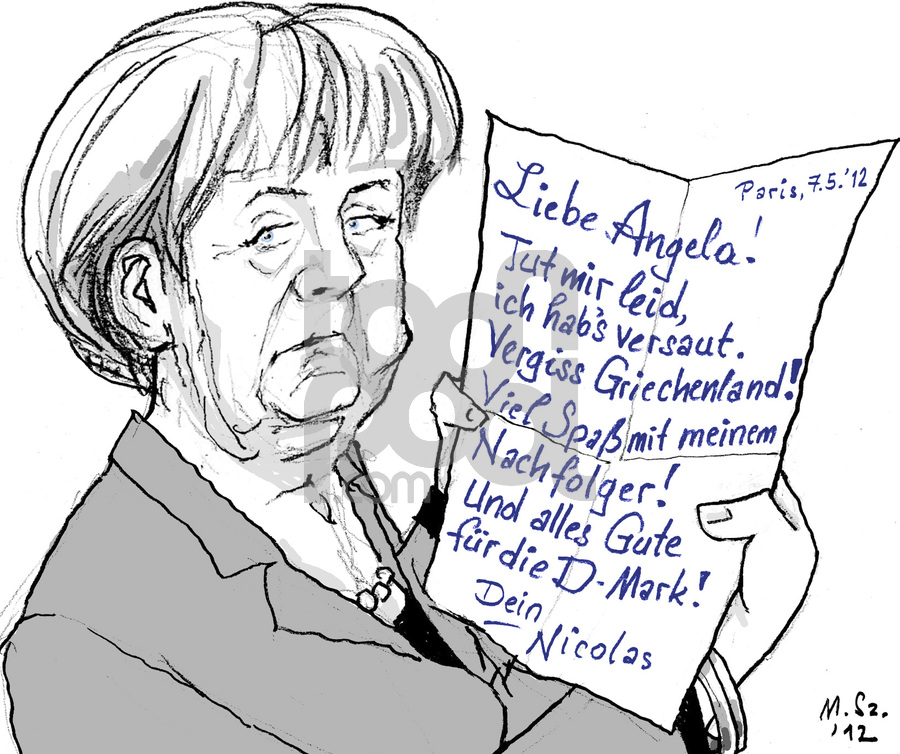 Paris, 7.5.'12
Liebe Angela!
Tut mir leid,
ich hab's versaut.
Vergiss Griechenland!
Viel Spaß mit meinem
Nachfolger!
Und alles Gute
für die D-Mark!
Dein
Nicolas
M. Sz.
'12
toool
.com